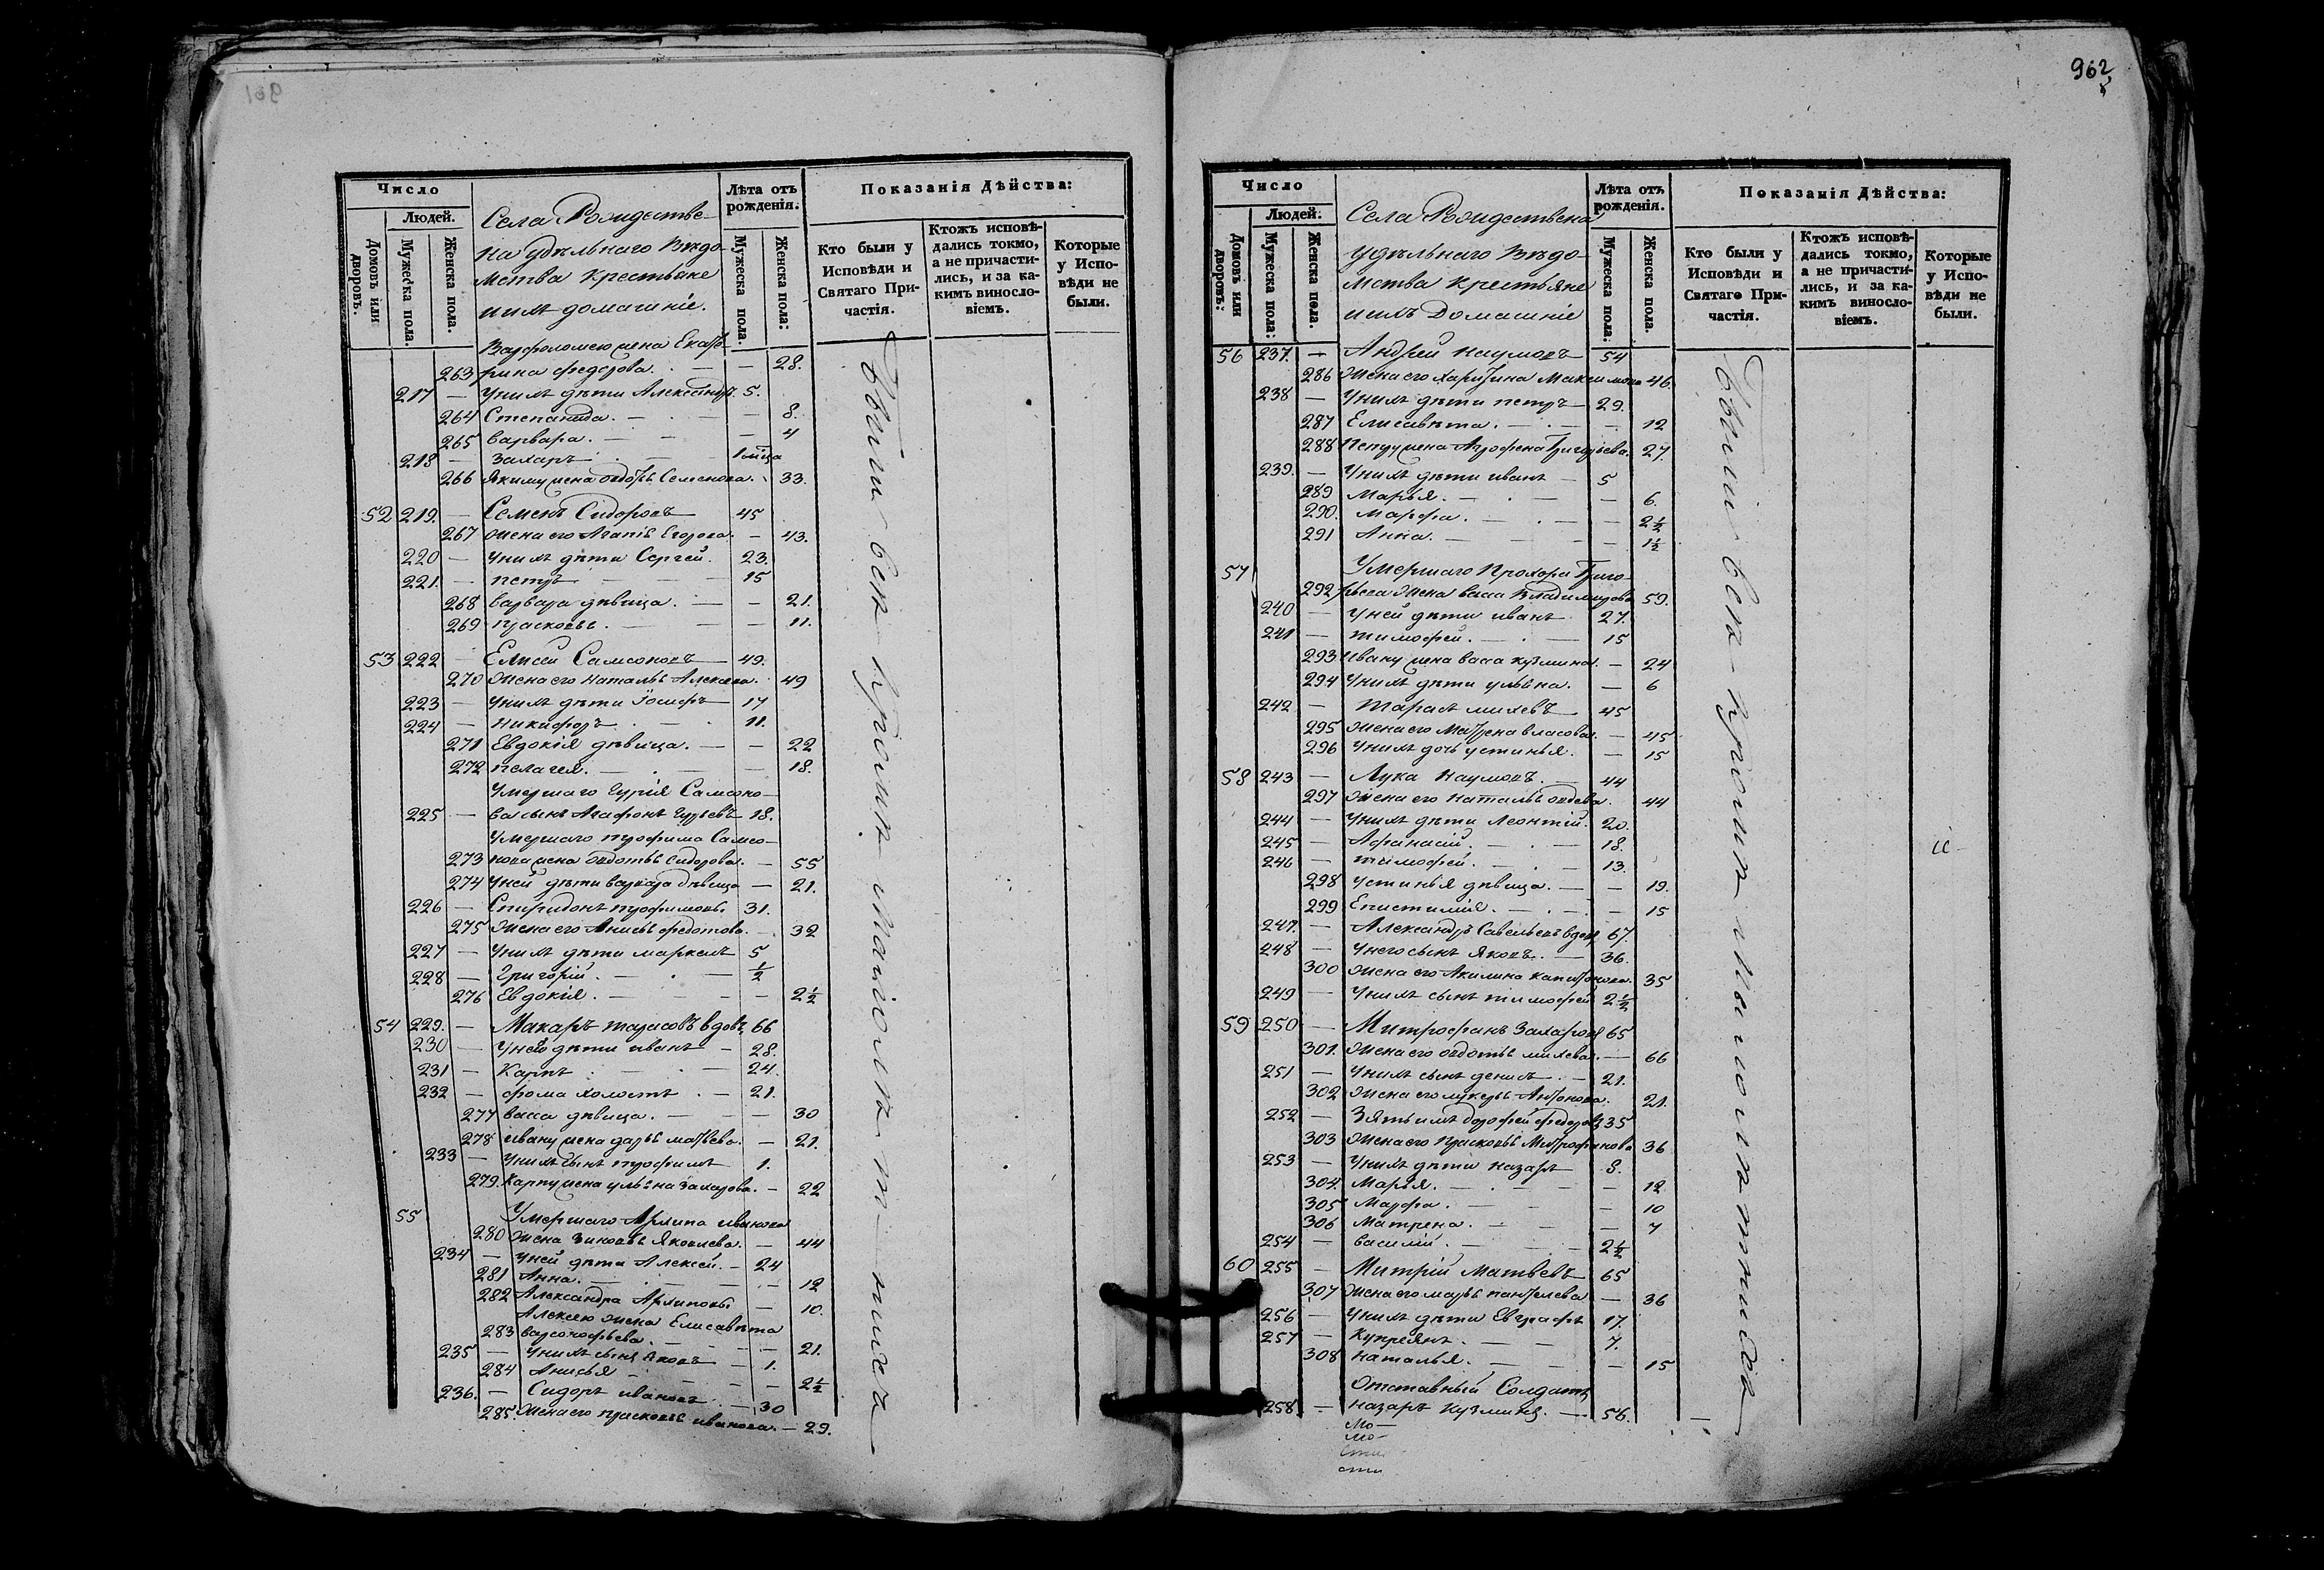 962
Число
Людей.
Домовъ или дворовъ.
Мужеска пола.
Женска пола.
Села Рождестве-
на удѣльнаго Вѣдо-
мства крестьяне
иихъ домашніе.
Лѣта отъ рожденія.
Мужеска пола.
Женска пола:
Показанія Дѣйства:
Кто были у Исповѣди и Святаго Причастія.
Ктожъ исповѣдались токмо, а не причастились, и за какимъ винословіемъ.
Которые у Исповѣди не были.
Варфоломею жена Екате-
263 рина федорова. — — 28.
217 — Унихъ дѣти Александръ. 5.
264 Степанида. — — 8.
265 варвара. — — 4
218 — Захаръ — 1 мца
266 Якиму жена овдотья Семенова. 33.
52 219. — Семенъ Сидоровъ — 45
267 жена его Агапія Егорова. — 43.
220 — Унихъ дѣти Сергей. 23.
221. — петръ — — 15
268 варвара дѣвица. — — 21.
269 прасковья. — — — 11.
53 222 — Елисей Самсоновъ — 49.
270 жена его наталья Алексеева. 49
223 — Унихъ дѣти Іосифъ — 17
224 — никифоръ — 11.
271 Евдокія дѣвица. — — 22
272 пелагея. — — — 18.
Умершаго гурія Самсоно-
225 — ва сынъ Агафонъ гурьевъ 18.
Умершаго трофима Самсо-
273 нова жена овдотья сидорова. — 55
274 Уней дѣти варвара дѣвица — 21.
226 — Спиридонъ трофимовъ. 31.
275 жена его Анисья федотова. — 32
227 — Унихъ дѣти маркелъ 5
228 — григорій. — — ½
276 Евдокія. — — — 2½
54 229. — Макаръ тарасовъ вдовъ 66
230 — Унего дѣти иванъ — 28.
231 — Карпъ — — 24.
232 — фома холостъ. — 21.
277 васа дѣвица. — — 30
278 ивану жена дарья матвева. — 21.
233 — Унихъ сынъ трофимъ 1.
279. Карпу жена ульяна захарова. — 22
55 Умершаго Архипа иванова
280 жена зиновья Яковлева. — 44
234 — Уней дѣти Алексей. — 24
281 Анна. — — — 12
282 Александра Архиповы — 10.
Алексею жена Елисавѣта
283 варсонофьева. — — — 21.
235 — Унихъ сынъ Яковъ — 1.
284 Анисья — — — 2½
236. — Сидоръ ивановъ. — 30
285. жена его прасковья иванова. — 29.
Число
Людей.
Домовъ или дворовъ:
Мужеска пола:
Женска пола.
Села Рождествена
удѣльнаго Вѣдо-
мства крестьяне
иихъ Домашніе
Лѣта отъ рожденія.
Мужеска пола:
Женска пола.
Показанія Дѣйства:
Кто были у Исповѣди и Святаго Причастія.
Ктожъ исповѣдались токмо, а не причастились, и за какимъ винословіемъ.
Которые у Исповѣди не были.
56 237. — Андрей наумовъ — 54
286 жена его харитина Максимова 46.
238 — Унихъ дѣти петръ — 29.
287 Елисавѣта. — — — 12
288 Петру жена Агрофена Григорьева. 27.
239. — Унихъ дѣти иванъ — 5
289 Марья. — — — 6.
290. Марфа. — — — 2½
291 Анна. — — — 1½
57 Умершаго Прохора Григо-
292 рьева жена васа Владимирова 59.
240 — Уней дѣти иванъ. 27.
241 — тимофей. — — 15
293 Ивану жена васа кузмина. — 24
294 Унихъ дѣти ульяна. — 6
242 — Тарасъ михевъ — 45
295 жена его Матрена власова. — 45
296 Унихъ дочь устинья. — 15
58 243 — Лука Наумовъ. — 44
297 жена его наталья овдева. 44
244 — Унихъ дѣти Леонтій. 20.
245 — Афанасій. — — 18.
246 — тимофей. — — 13.
298 Устинья дѣвица. — — 19.
299 Епистимія. — — — 15
247. — Александръ Савельевъ вдовъ 67.
248 — Унего сынъ Яковъ. — 36.
300 жена его Акилина капитонова. 35
249 — Унихъ сынъ тимофей 2½
59 250 — Митрофанъ Захаровъ 65
301. жена его овдотья михева. — 66
251 — Унихъ сынъ денисъ. — 21.
302 жена его лукерья Антонова. 21.
252 — Зять ихъ дорофей федоровъ 35
303 жена его Прасковья Митрофанова 36
253 — Унихъ дѣти назаръ 8.
304. Марья. — — — 12
305 Марфа. — — — 10
306 Матрена. — — — 7
254 — василій. — — 2½
60 255 — Митрій Матвѣевъ 65
307 жена его марья пантелева — 36
256 — Унихъ дѣти Евграфъ 17.
257 — Купреянъ. — — 7.
308 наталья. — — — 15
Отставный Солдатъ
258 — назаръ кузминъ. — 56.